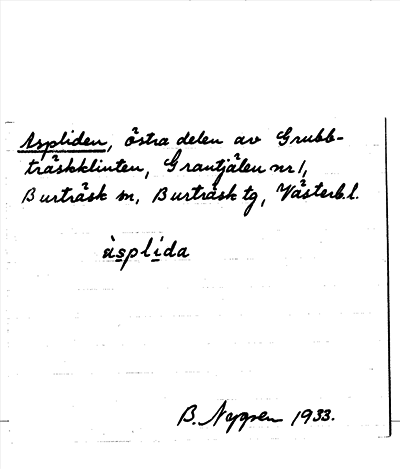 Aspliden, östra delen av Grubb-
träskklinten, Grantjälen nr 1,
Burträsk sn, Burträsk tg, Västerb.l.
àsplida
B. Nygren 1933.